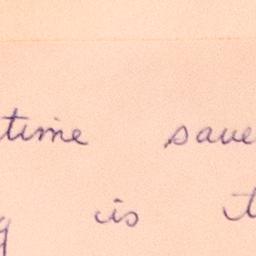 time save
is